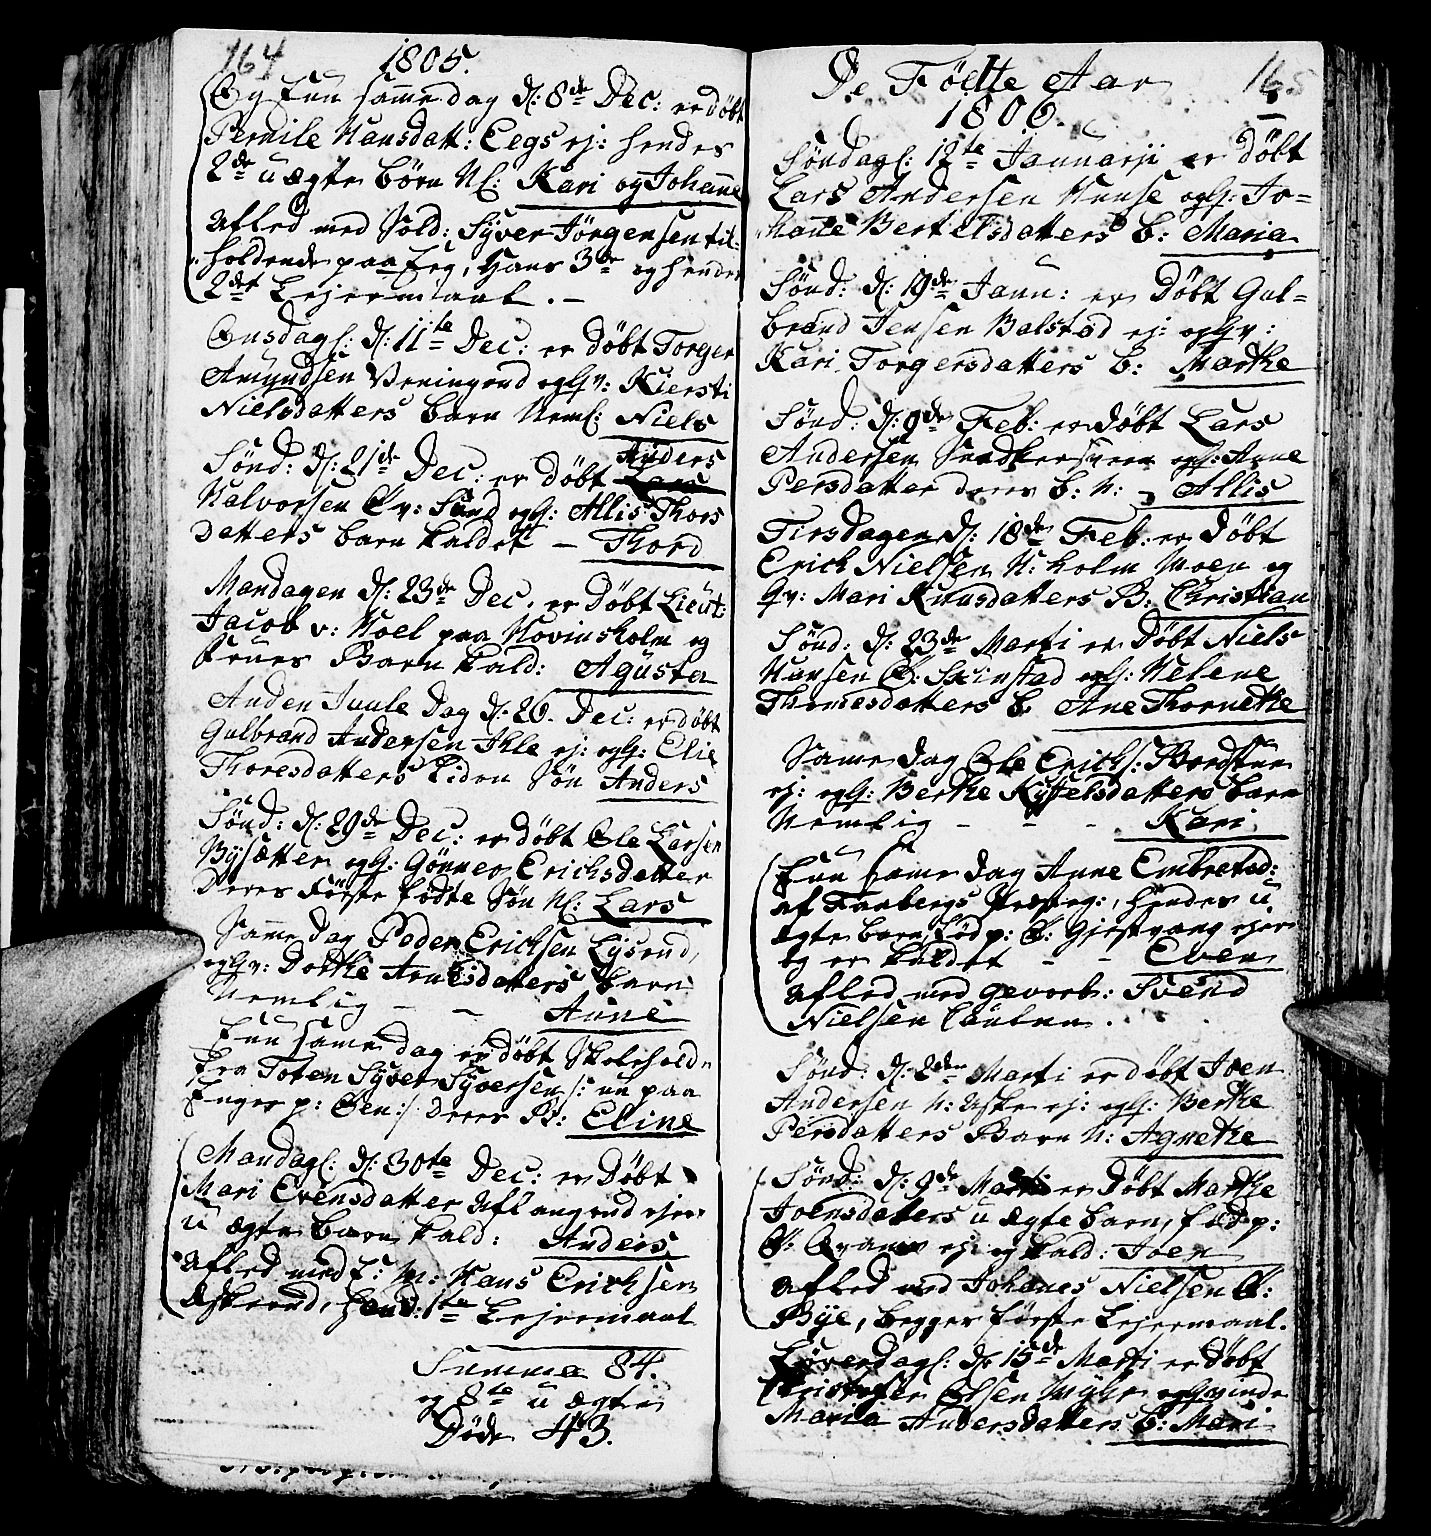 164 1805.
Og Eun samme dag d: 8de Dec: er døbt
Pernile Hansdatt: Eegs ej: hendes
2de uægte børn Nl: Kari og Johanne
Afled med Sold: Syver Jørgensen til-
holdende paa Eeg, Hans 3de og hendes
2det Lejermaal.
Onsdagl: d: 11te Dec: er døbt Torger
Amundsen Veningrud og Gv: Kiersti
Nielsdatters barn Neml: Niels
Sønd: d: 21de Dec: er døbt Anders
Halvorsen Sand og G: Allis Thors
datters barn kaldet - Thord
Mandagen d: 23de Dec. er Døbt Lieut:
Jacob v: Hoel paa Hovinsholm og
Frues Barn kald: Agusta
Anden Juule Dag d: 26. Dec: er døbt
Gulbrand Andersen Ihle ej: og G: Elie
Thoresdatters liden Søn Anders
Sønd: d: 29de Dec: er døbt Ole Larsen
Bysætter og G: Gønner Erichsdatter
Deres Første fødte Søn Nl: Lars
Samme Dag Peder Erichsen Lysrud,
og Gv: Dorthe Arnesdatters barn
Nemlig - - Anne
Eun same dag er døbt Skolehold:
fra Toten Syver Syversen /: nu paa
Enger p: Øen :/ deres B: Eline
Mandagl: d: 30te Dec: er Døbt
Mari Evensdatter ejer
uægte barn kald: Anders
Afled med Hans Erichsen
1te Lejermaal
Summa 84.
og 8te uægte
Døde 43.
De Fødte Aar 165
1806.
Søndagl: 12te Januarji er døbt
Lars Andersen Hunse og G: Jo-
hanne Bertelsdatters b: Maria
Sønd: d: 19de Janu: er Døbt Gul-
brand Jensen Balstad ej: og Gv:
Kari Torgersdatters b: Marthe
Sønd: d: 9de Feb: er døbt Lars
Andersen og G: Anne
Persdatter deres b: N: Allis
Tirsdagen d: 18de Feb: er Døbt
Erich Nielsen N: Holm Moen og
Gv: Mari Knusdatters B: Christian
Sønd: d: 23de Marti er Døbt Niels
Hansen Ø: Skinstad og G: Helene
Thomesdatters b. Ane Thornethe
Same Dag Ole Erichs: Bordstue
ej: og G: Berthe Kystelsdatters barn
Nemlig - - - Kari
Eun same dag Anne Embretsd:
af Faabergs Præsteg:, hendes u
ægte barn fød p: Ø: Gjestvang ejer
og er kaldet - - Even
Afled med gevorb: Svend
Nielsen Lauben.
Sønd: d: 2den Marti er døbt Joen
Andersen N: Aske ej: og G: Berthe
Persdatters Barn N: Agnethe
Sønd: d: 9de Marti er Døbt Marthe
Joensdatters uægte barn, fød p:
Ø: Qvame ej: og kald: Joen
Afled med Johanes Nielsen Ø:
Bye, begges første Lejermaal.
Løverdagl: d: 15de Marti er Døbt
Christopher Olsen og Qvinde
Maria Andersdatters b: Mari